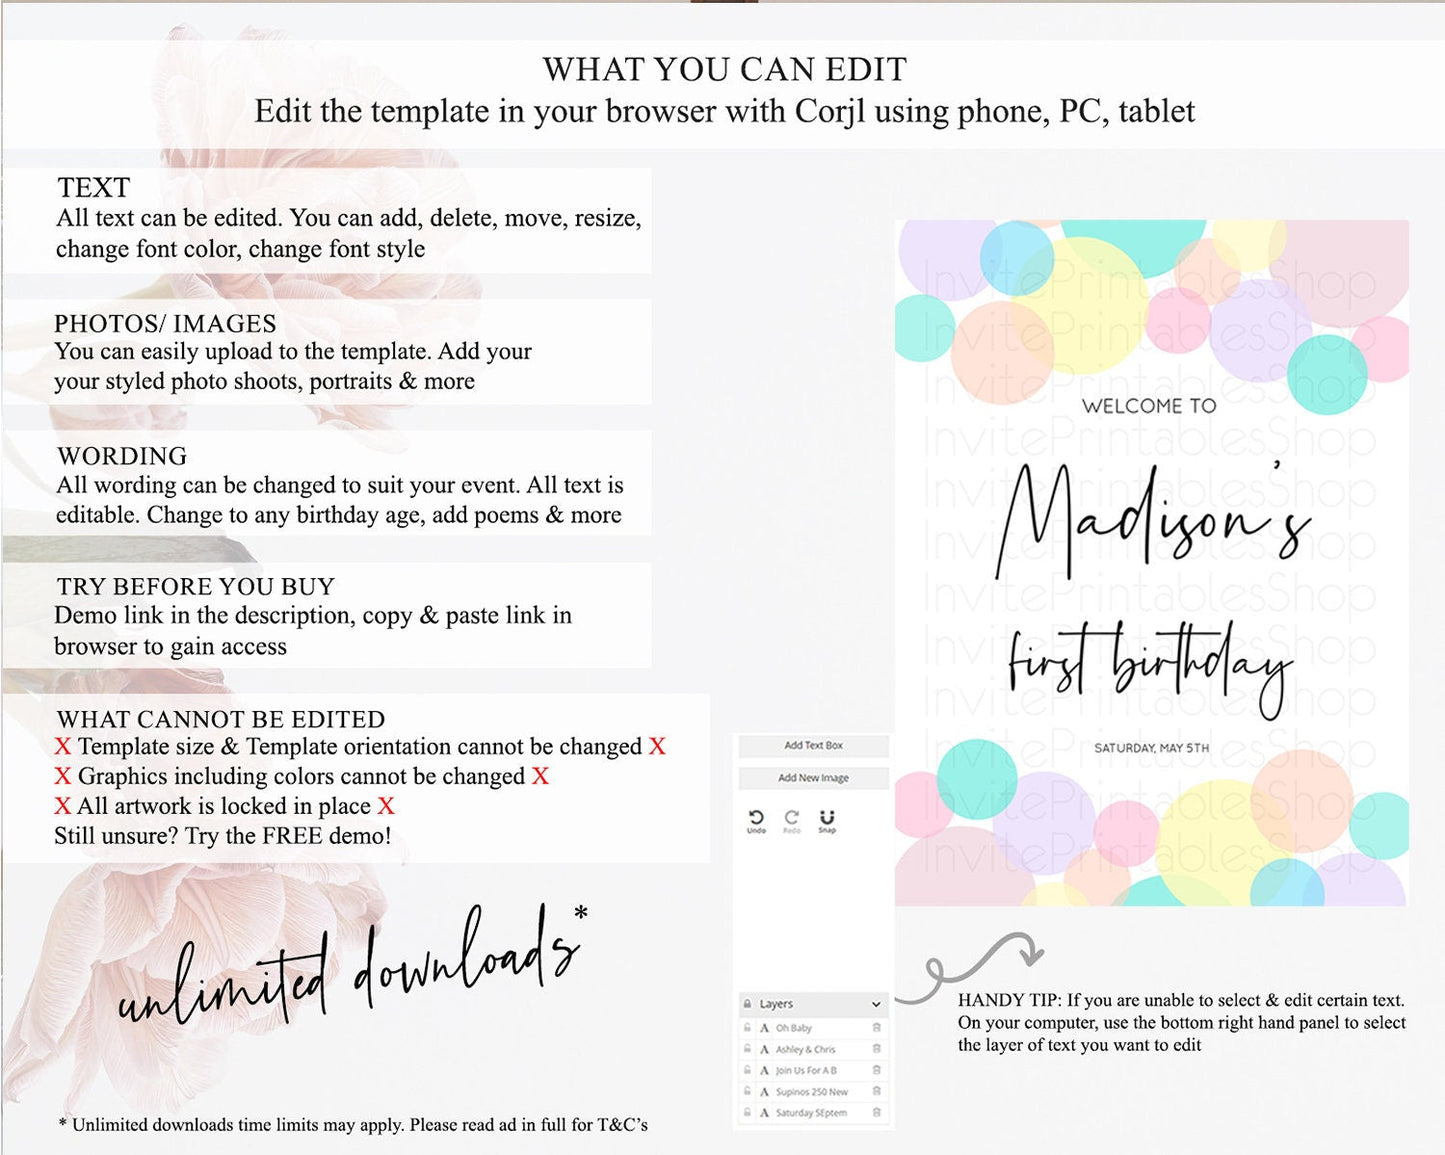 WHAT YOU CAN EDIT
Edit the template in your browser with Corjl using phone, PC, tablet
TEXT
All text can be edited. You can add, delete, move, resize,
change font color, change font style
PHOTOS/ IMAGES
You can easily upload to the template. Add your
your styled photo shoots, portraits & more
WORDING
All wording can be changed to suit your event. All text is
editable. Change to any birthday age, add poems & more
TRY BEFORE YOU BUY
Demo link in the description, copy & paste link in
browser to gain access
WHAT CANNOT BE EDITED
X Template size & Template orientation cannot be changed X
X Graphics including colors cannot be changed X
X All artwork is locked in place X
Still unsure? Try the FREE demo!
unlimited downloads*
* Unlimited downloads time limits may apply. Please read ad in full for T&C's
Add Text Box
Add New Image
Undo Redo Snap
Layers
A Oh Baby
A Ashley & Chris
A Join Us For A B
A Supinos 250 New
A Saturday SEptem
InvitePrintablesShop
InvitePrintablesShop
InvitePrintablesShop
InvitePrintablesShop
WELCOME TO
InvitePrintablesShop
InvitePrintablesShop
Madison's
InvitePrintablesShop
InvitePrintablesShop
first birthday
InvitePrintablesShop
InvitePrintablesShop
SATURDAY, MAY 5TH
InvitePrintablesShop
InvitePrintablesShop
HANDY TIP: If you are unable to select & edit certain text.
On your computer, use the bottom right hand panel to select
the layer of text you want to edit